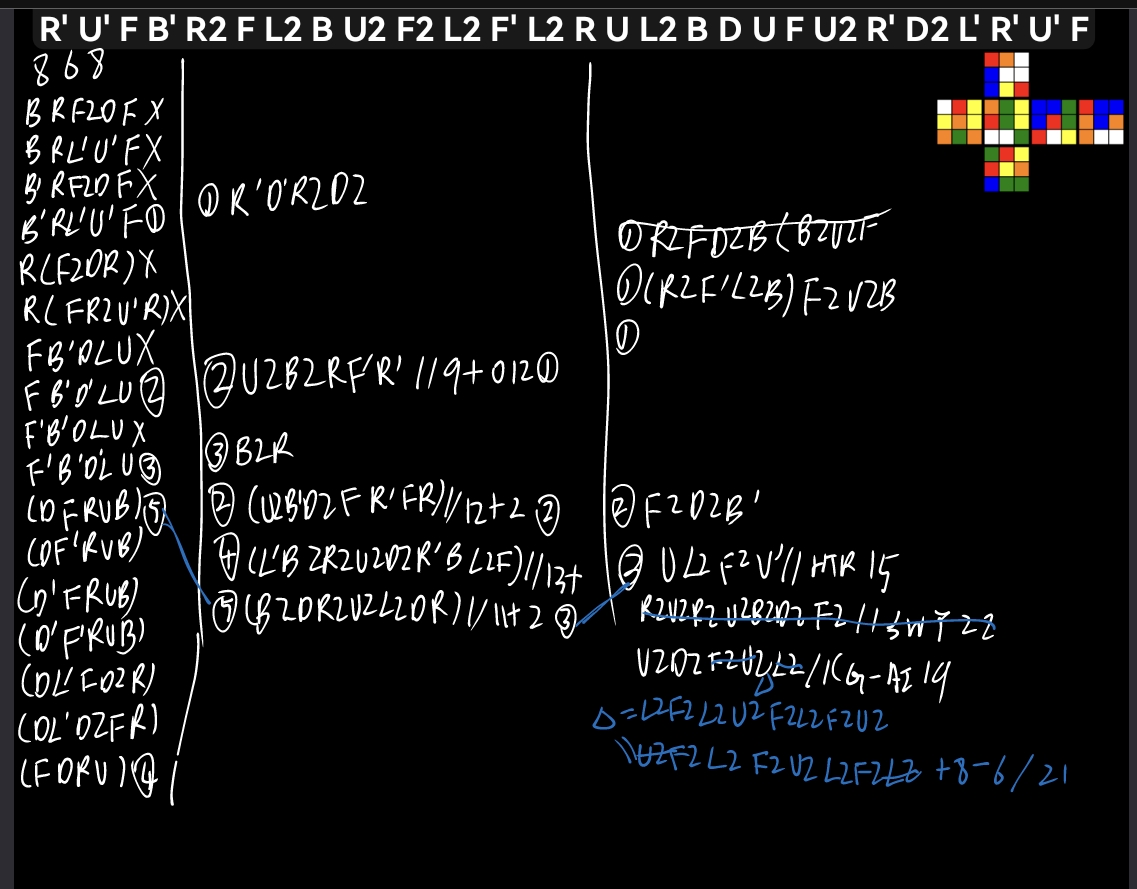 R' U' F B' R2 F L2 B U2 F2 L2 F' L2 R U L2 B D U F U2 R' D2 L' R' U' F
868
B R F2 D F X
B R L' U' F X
B' R F2 D F X
B' R L' U' F ①
R (F2 D R) X
R (F R2 U' R) X
F B' D L U X
F B' D' L U ②
F' B' D L U X
F' B' D' L U ③
(D F R U B) ⑤
(D F' R U B)
(D' F R U B)
(D' F' R U B)
(D L' F D2 R)
(D L' D2 F R)
(F D R U) ④
① R' D' R2 D2
② U2 B2 R F' R' // 9 + 0 12 ①
③ B2 R
② (U2 B' D2 F R' F R) // 12 + 2 ②
④ (L' B 2 R2 U2 D2 R' B L2 F) // 13 +
⑤ (B2 D R2 U2 L2 D R) // 11 + 2 ③
① R2 F D2 B (B2 U2 F
① (R2 F' L2 B) F2 U2 B
①
② F2 D2 B'
③ U L2 F2 U' // HTR 15
R2 U2 R2 U2 B2 D2 F2 // 3WT 22
U2 D2 F2 U2 L2 / 1CG-AI 19
Δ
Δ = L2 F2 L2 U2 F2 L2 F2 U2
\\ U2 F2 L2 F2 U2 L2 F2 L2 + 8 - 6 / 21